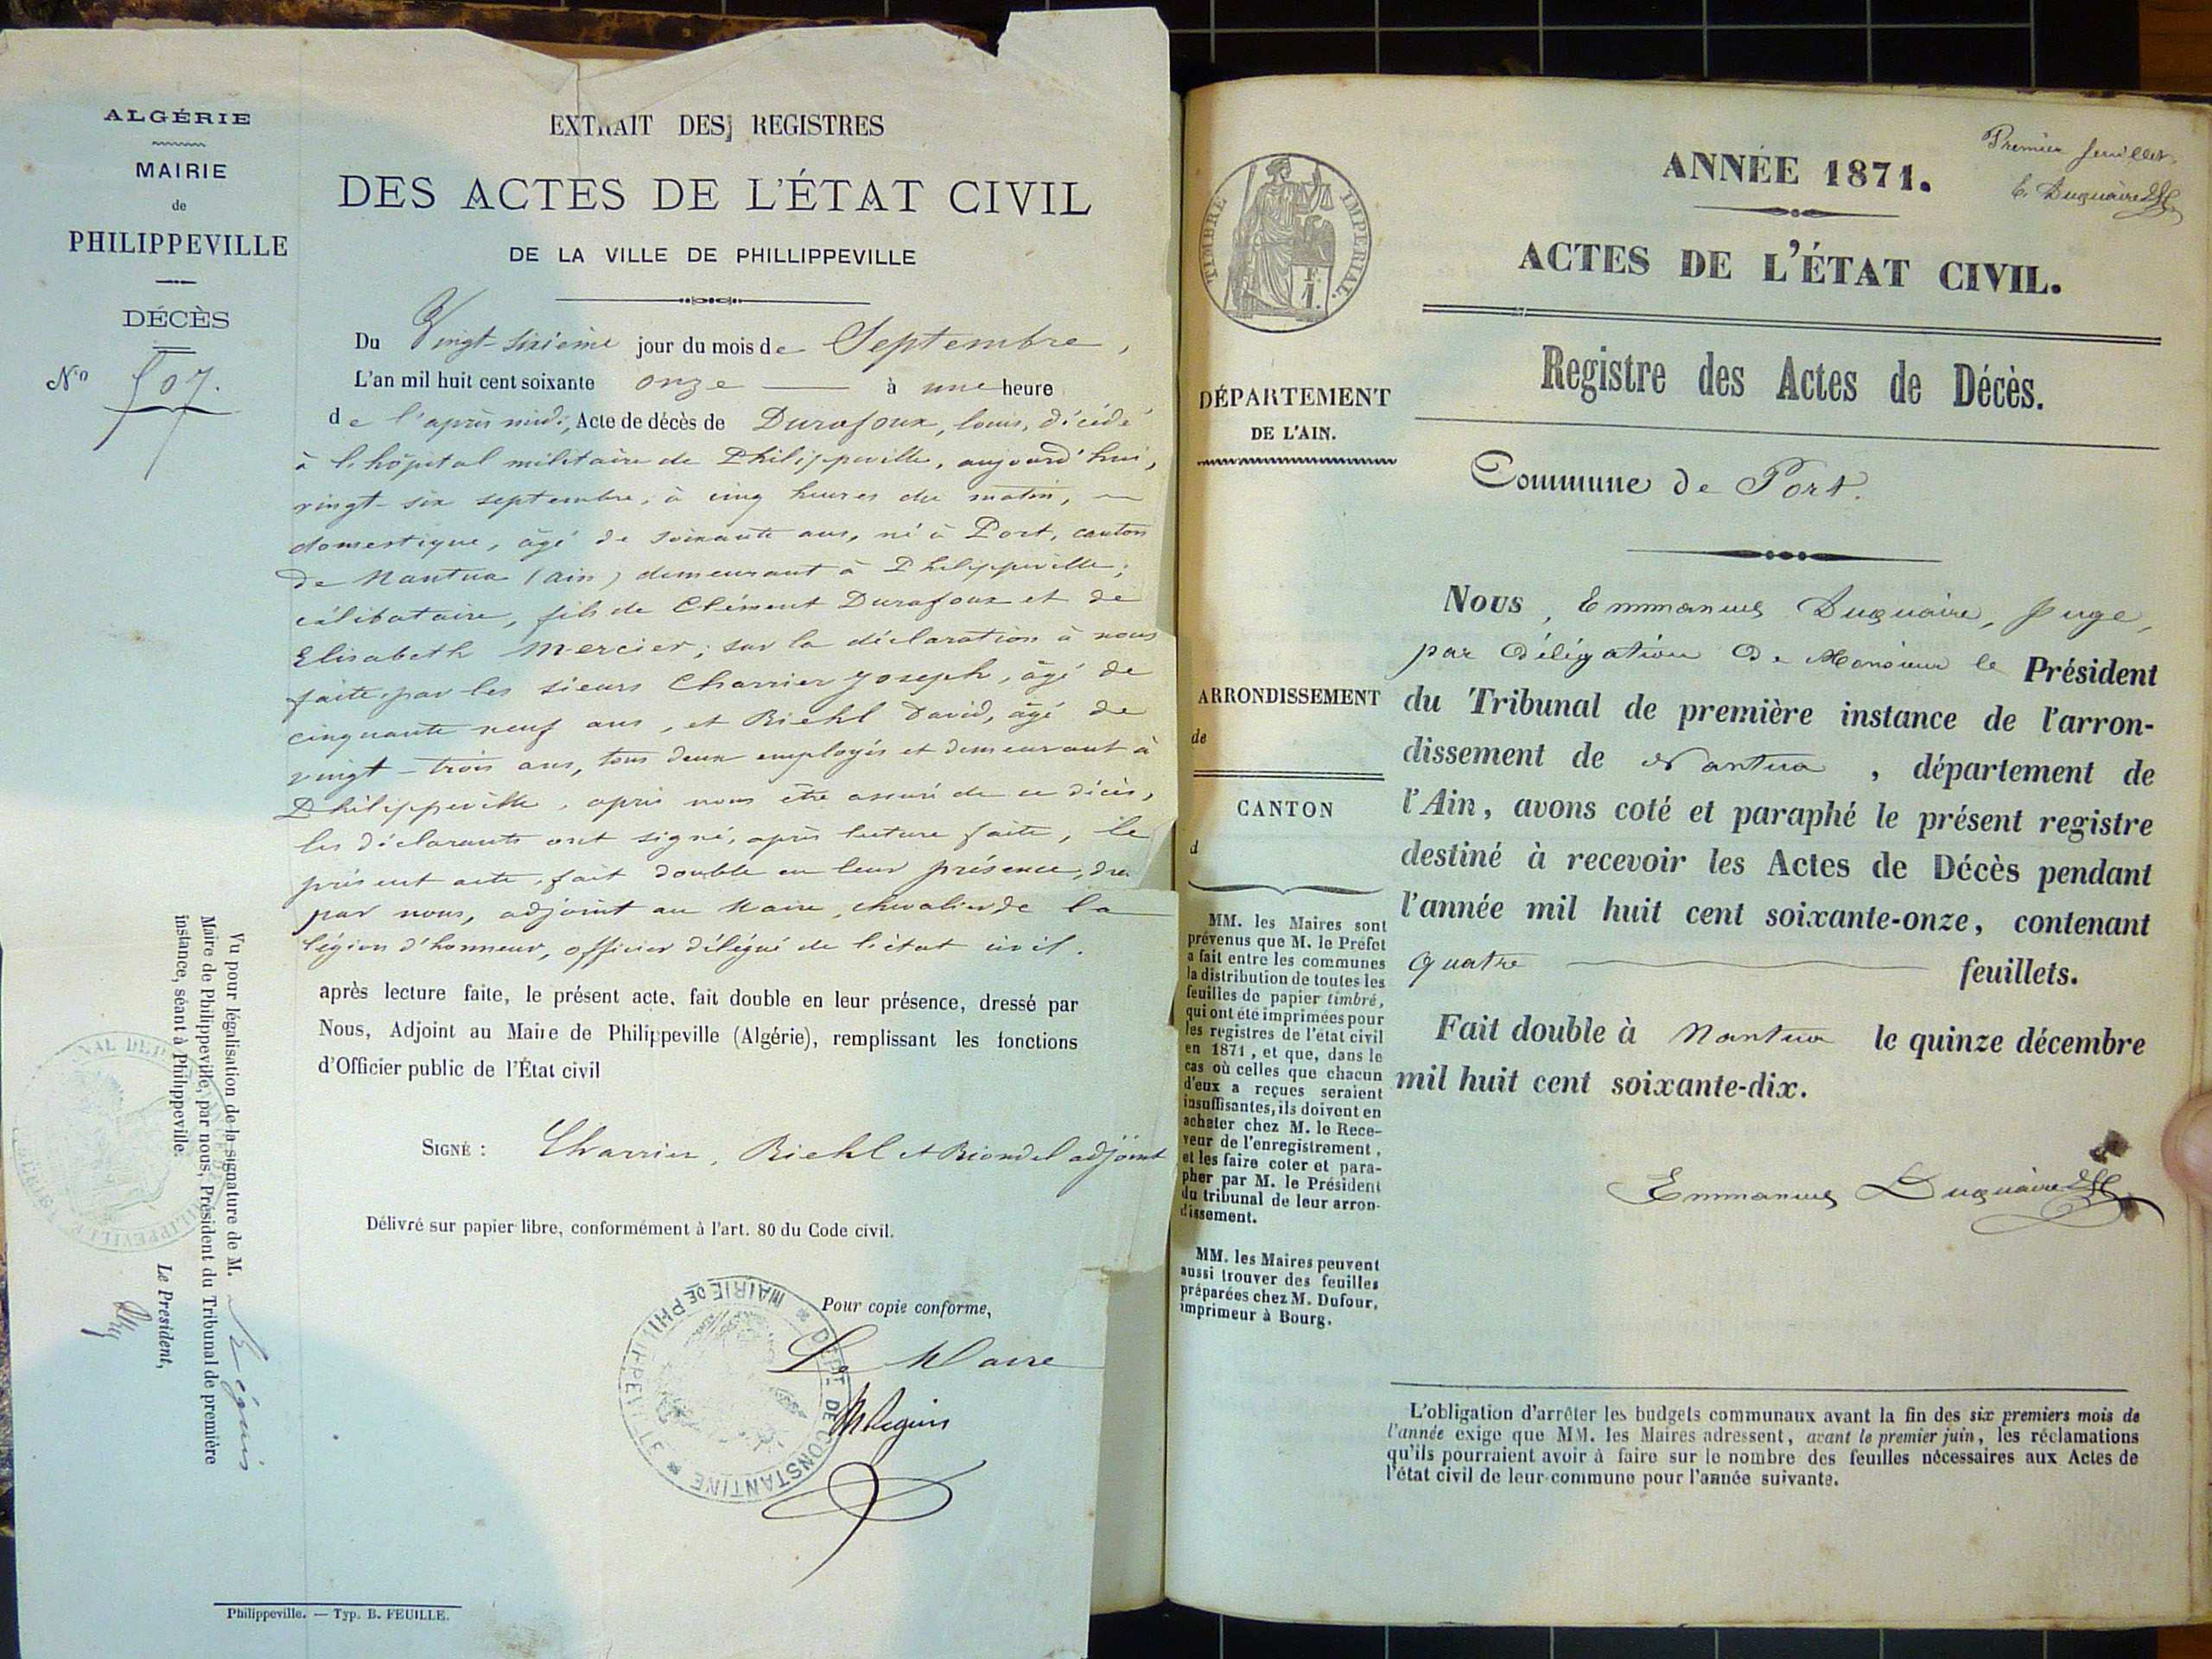 ALGÉRIE
MAIRIE
de
PHILIPPEVILLE
DÉCÈS
N° 507.
EXTRAIT DES REGISTRES
DES ACTES DE L'ÉTAT CIVIL
DE LA VILLE DE PHILLIPPEVILLE
Du Vingt-sixième jour du mois de Septembre,
L'an mil huit cent soixante onze à une heure
de l'après midi, Acte de décès de Durafour, louis, décédé
à l'hôpital militaire de Philippeville, aujourd'hui,
vingt-six septembre, à cinq heures du matin,
domestique, âgé de soixante ans, né à Port, canton
de Nantua (ain) demeurant à Philippeville;
célibataire, fils de Clément Durafour et de
Elisabeth Mercier; sur la déclaration à nous
faite par les sieurs Charrier Joseph, âgé de
cinquante neuf ans, et Riehl David, âgé de
vingt-trois ans, tous deux employés et demeurant à
Philippeville, après nous être assuré de ce décès,
les déclarants ont signé, après lecture faite, le
présent acte, fait double en leur présence, dre
par nous, adjoint au Maire, chevalier de la
légion d'honneur, officier délégué de l'état civil.
après lecture faite, le présent acte, fait double en leur présence, dressé par
Nous, Adjoint au Maire de Philippeville (Algérie), remplissant les fonctions
d'Officier public de l'État civil
SIGNÉ : Charrier, Riehl et Biondel adjoint
Délivré sur papier libre, conformément à l'art. 80 du Code civil.
Pour copie conforme,
Le Maire
MAIRIE DE PHILIPPEVILLE * DEPT. DE CONSTANTINE *
Vu pour légalisation de la signature de M.
Maire de Philippeville, par nous, Président du Tribunal de première
instance, séant à Philippeville.
Le Président,
Philippeville. — Typ. B. FEUILLE.
Premier feuillet
E. Duquaire
TIMBRE IMPERIAL.
1 F.
ANNÉE 1871.
ACTES DE L'ÉTAT CIVIL.
Registre des Actes de Décès.
DÉPARTEMENT
DE L'AIN.
ARRONDISSEMENT
de
CANTON
d
MM. les Maires sont
prévenus que M. le Préfet
a fait entre les communes
la distribution de toutes les
feuilles de papier timbré,
qui ont été imprimées pour
les registres de l'état civil
en 1871, et que, dans le
cas où celles que chacun
d'eux a reçues seraient
insuffisantes, ils doivent en
acheter chez M. le Rece-
veur de l'enregistrement,
et les faire coter et para-
pher par M. le Président
du tribunal de leur arron-
dissement.
MM. les Maires peuvent
aussi trouver des feuilles
préparées chez M. Dufour,
imprimeur à Bourg.
Commune de Port.
Nous, Emmanuel Duquaire, Juge,
par délégation de Monsieur le Président
du Tribunal de première instance de l'arron-
dissement de Nantua, département de
l'Ain, avons coté et paraphé le présent registre
destiné à recevoir les Actes de Décès pendant
l'année mil huit cent soixante-onze, contenant
quatre feuillets.
Fait double à Nantua le quinze décembre
mil huit cent soixante-dix.
Emmanuel Duquaire
L'obligation d'arrêter les budgets communaux avant la fin des six premiers mois de
l'année exige que MM. les Maires adressent, avant le premier juin, les réclamations
qu'ils pourraient avoir à faire sur le nombre des feuilles nécessaires aux Actes de
l'état civil de leur commune pour l'année suivante.